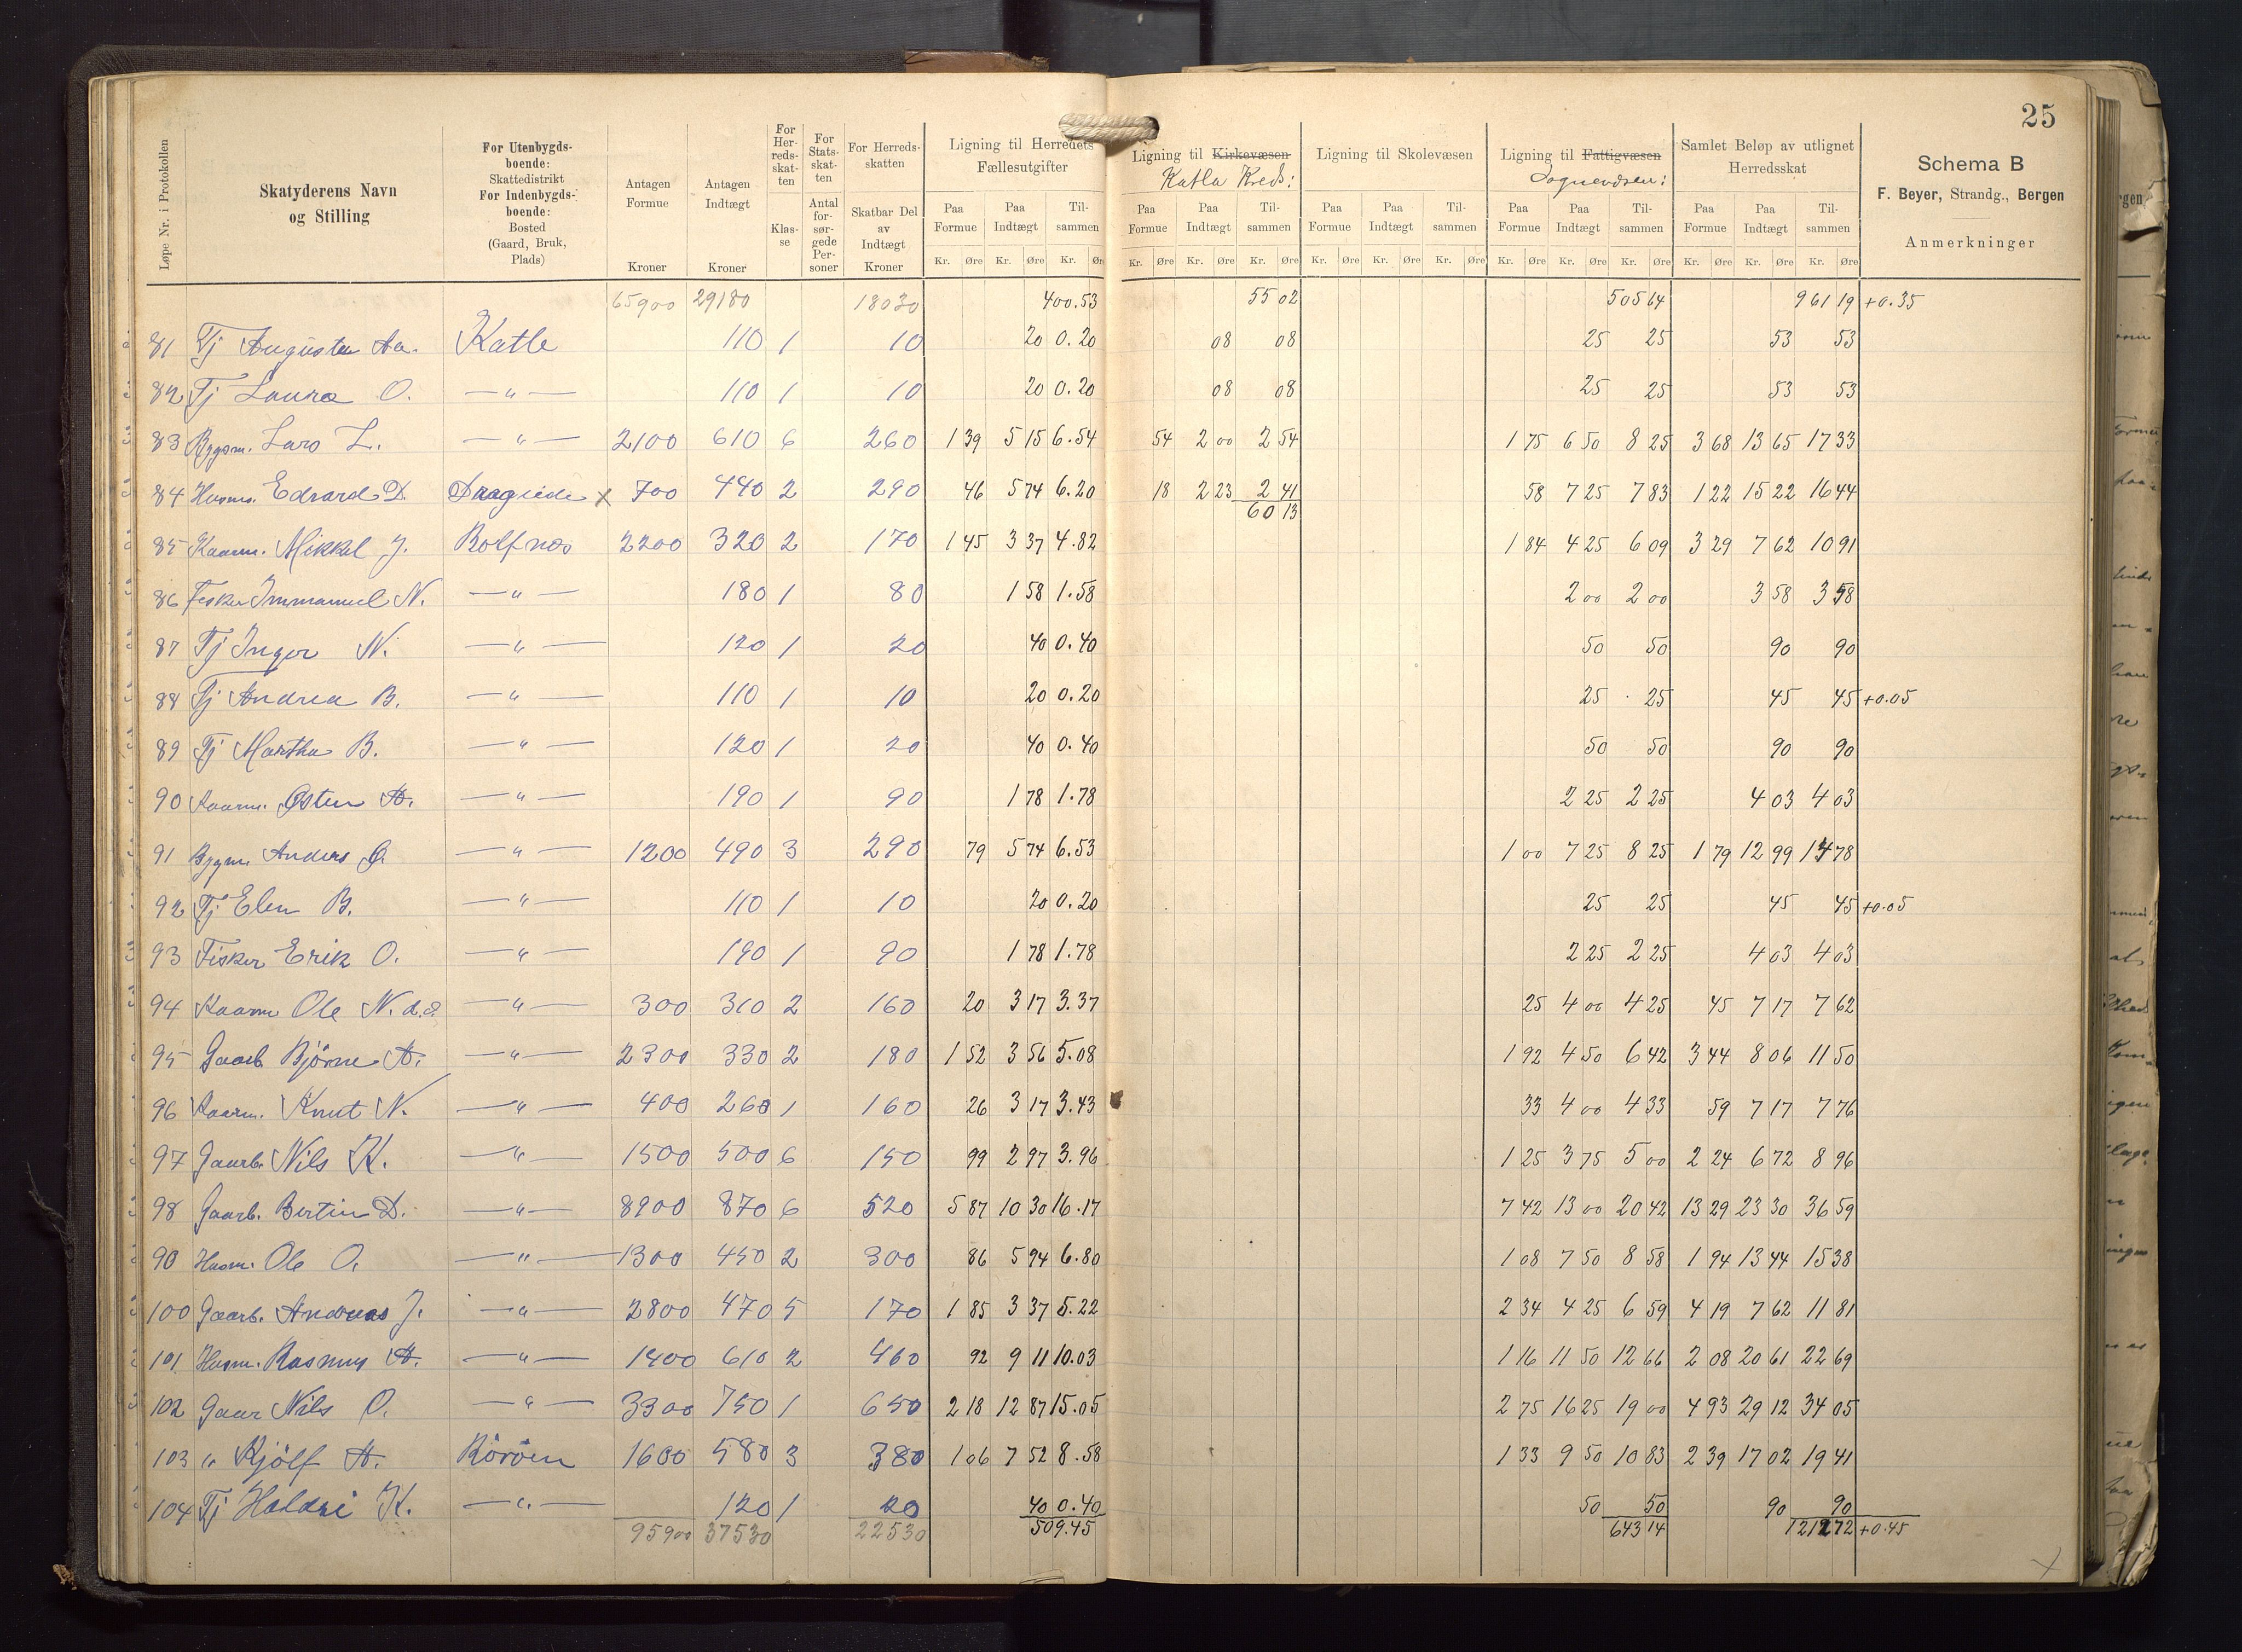 25
Løpe Nr. i Protokollen
Skatyderens Navn og Stilling
For Utenbygdsboende: Skattedistrikt For Indenbygdsboende: Bosted (Gaard, Bruk, Plads)
Antagen Formue Kroner
Antagen Indtægt Kroner
For Herredsskatten Klasse
For Statsskatten Antal forsørgede Personer
For Herredsskatten Skatbar Del av Indtægt Kroner
Ligning til Herredets Fællesutgifter
Paa Formue Paa Indtægt Tilsammen
Kr. Øre Kr. Øre Kr. Øre
Ligning til Kirkevæsen Katla Kreds:
Paa Formue Paa Indtægt Tilsammen
Kr. Øre Kr. Øre Kr. Øre
Ligning til Skolevæsen
Paa Formue Paa Indtægt Tilsammen
Kr. Øre Kr. Øre Kr. Øre
Ligning til Fattigvæsen
Paa Formue Paa Indtægt Tilsammen
Kr. Øre Kr. Øre Kr. Øre
Samlet Beløp av utlignet Herredsskat
Paa Formue Paa Indtægt Tilsammen
Kr. Øre Kr. Øre Kr. Øre
Schema B
F. Beyer, Strandg., Bergen
Anmerkninger
65900 29180 18030 400.53 55 02 505 64 961 19 +0.35
81 Tj Augusta Aa. Katle 110 1 10 20 0.20 08 08 25 25 53 53
82 Tj Laura O. —"— 110 1 10 20 0.20 08 08 25 25 53 53
83 Bygsm. Lars L. —"— 2100 610 6 260 1 39 5 15 6.54 54 2 00 2 54 1 75 6 50 8 25 3 68 13 65 17 33
84 Husm. Edvard D. x 700 440 2 290 46 5 74 6.20 18 2 23 2 41 58 7 25 7 83 1 22 15 22 16 44
60 13
85 Kaarm. Mikkel J. Bolfnæs 2200 320 2 170 1 45 3 37 4.82 1 84 4 25 6 09 3 29 7 62 10 91
86 Fisker Immanuel N. —"— 180 1 80 1 58 1.58 2 00 2 00 3 58 3 58
87 Tj Inger N. —"— 120 1 20 40 0.40 50 50 90 90
88 Tj Andrea B. —"— 110 1 10 20 0.20 25 25 45 45 +0.05
89 Tj Martha B. —"— 120 1 20 40 0.40 50 50 90 90
90 Kaarm. Østen A. —"— 190 1 90 1 78 1.78 2 25 2 25 4 03 4 03
91 Bygm. Anders Ø. —"— 1200 490 3 290 79 5 74 6.53 1 00 7 25 8 25 1 79 12 99 14 78
92 Tj Elen B. —"— 110 1 10 20 0.20 25 25 45 45 +0.05
93 Fisker Erik O. —"— 190 1 90 1 78 1.78 2 25 2 25 4 03 4 03
94 Kaarm Ole N. d.e. —"— 300 310 2 160 20 3 17 3.37 25 4 00 4 25 45 7 17 7 62
95 Gaarb. Bjørne A. —"— 2300 330 2 180 1 52 3 56 5.08 1 92 4 50 6 42 3 44 8 06 11 50
96 Kaarm. Knut N. —"— 400 260 1 160 26 3 17 3.43 33 4 00 4 33 59 7 17 7 76
97 Gaarb. Nils K. —"— 1500 500 6 150 99 2 97 3.96 1 25 3 75 5 00 2 24 6 72 8 96
98 Gaarb. Bertin D. —"— 8900 870 6 520 5 87 10 30 16.17 7 42 13 00 20 42 13 29 23 30 36 59
90 Husm. Ole O. —"— 1300 450 2 300 86 5 94 6.80 1 08 7 50 8 58 1 94 13 44 15 38
100 Gaarb. Andreas J. —"— 2800 470 5 170 1 85 3 37 5.22 2 34 4 25 6 59 4 19 7 62 11 81
101 Husm. Rasmus A. —"— 1400 610 2 460 92 9 11 10.03 1 16 11 50 12 66 2 08 20 61 22 69
102 Gaar Nils O. —"— 3300 750 1 650 2 18 12 87 15.05 2 75 16 25 19 00 4 93 29 12 34 05
103 " Kjølf A. Röröen 1600 580 3 380 1 06 7 52 8.58 1 33 9 50 10 83 2 39 17 02 19 41
104 Tj Haldri K. —"— 120 1 20 40 0.40 50 50 90 90
95900 37530 22530 509.45 643 14 1212 72 +0.45